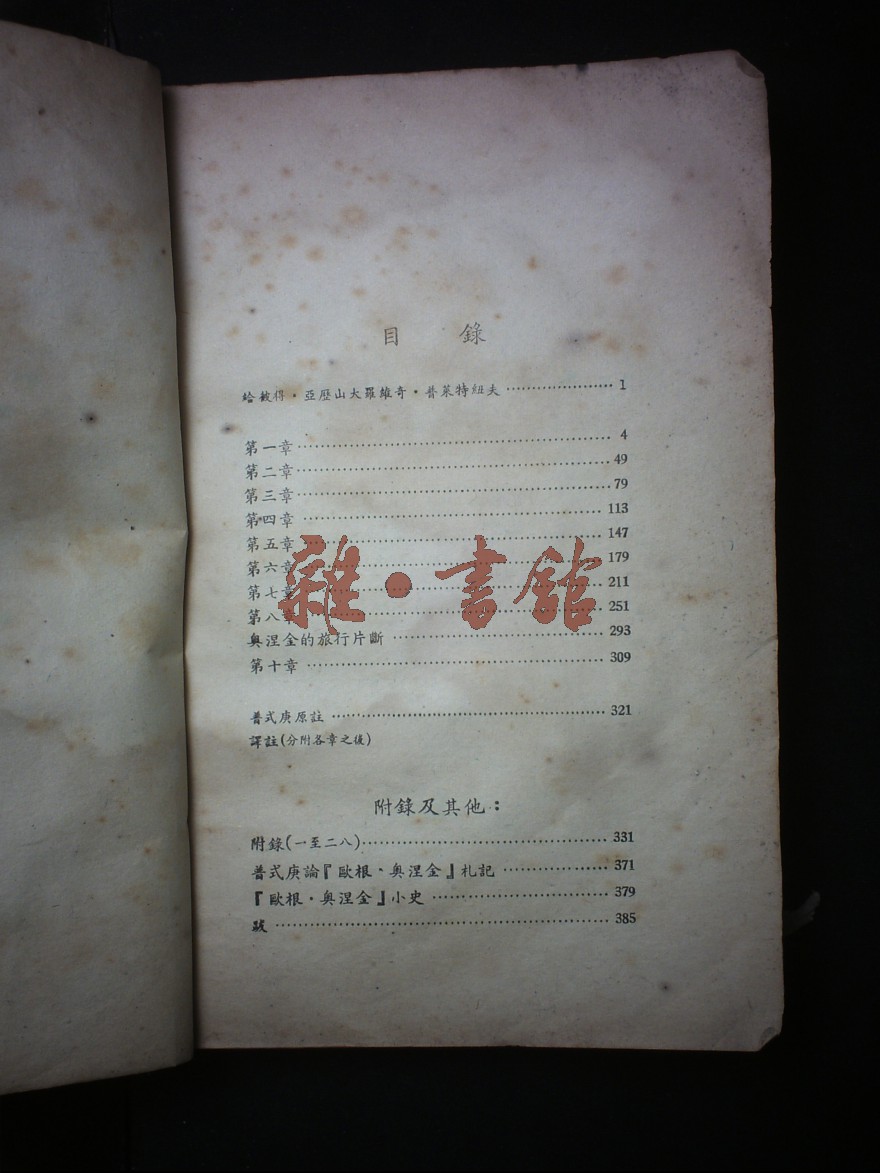 目 錄
給彼得·亞歷山大羅維奇·普萊特紐夫 …………………… 1
第一章 …………………… 4
第二章 …………………… 49
第三章 …………………… 79
第四章 …………………… 113
第五章 …………………… 147
第六章 …………………… 179
第七章 …………………… 211
第八章 …………………… 251
雜·書館
奥涅金的旅行片斷 …………………… 293
第十章 …………………… 309
普式庚原註 …………………… 321
譯註(分附各章之後)
附錄及其他：
附錄(一至二八) …………………… 331
普式庚論『歐根·奥涅金』札記 …………………… 371
『歐根·奥涅金』小史 …………………… 379
跋 …………………… 385